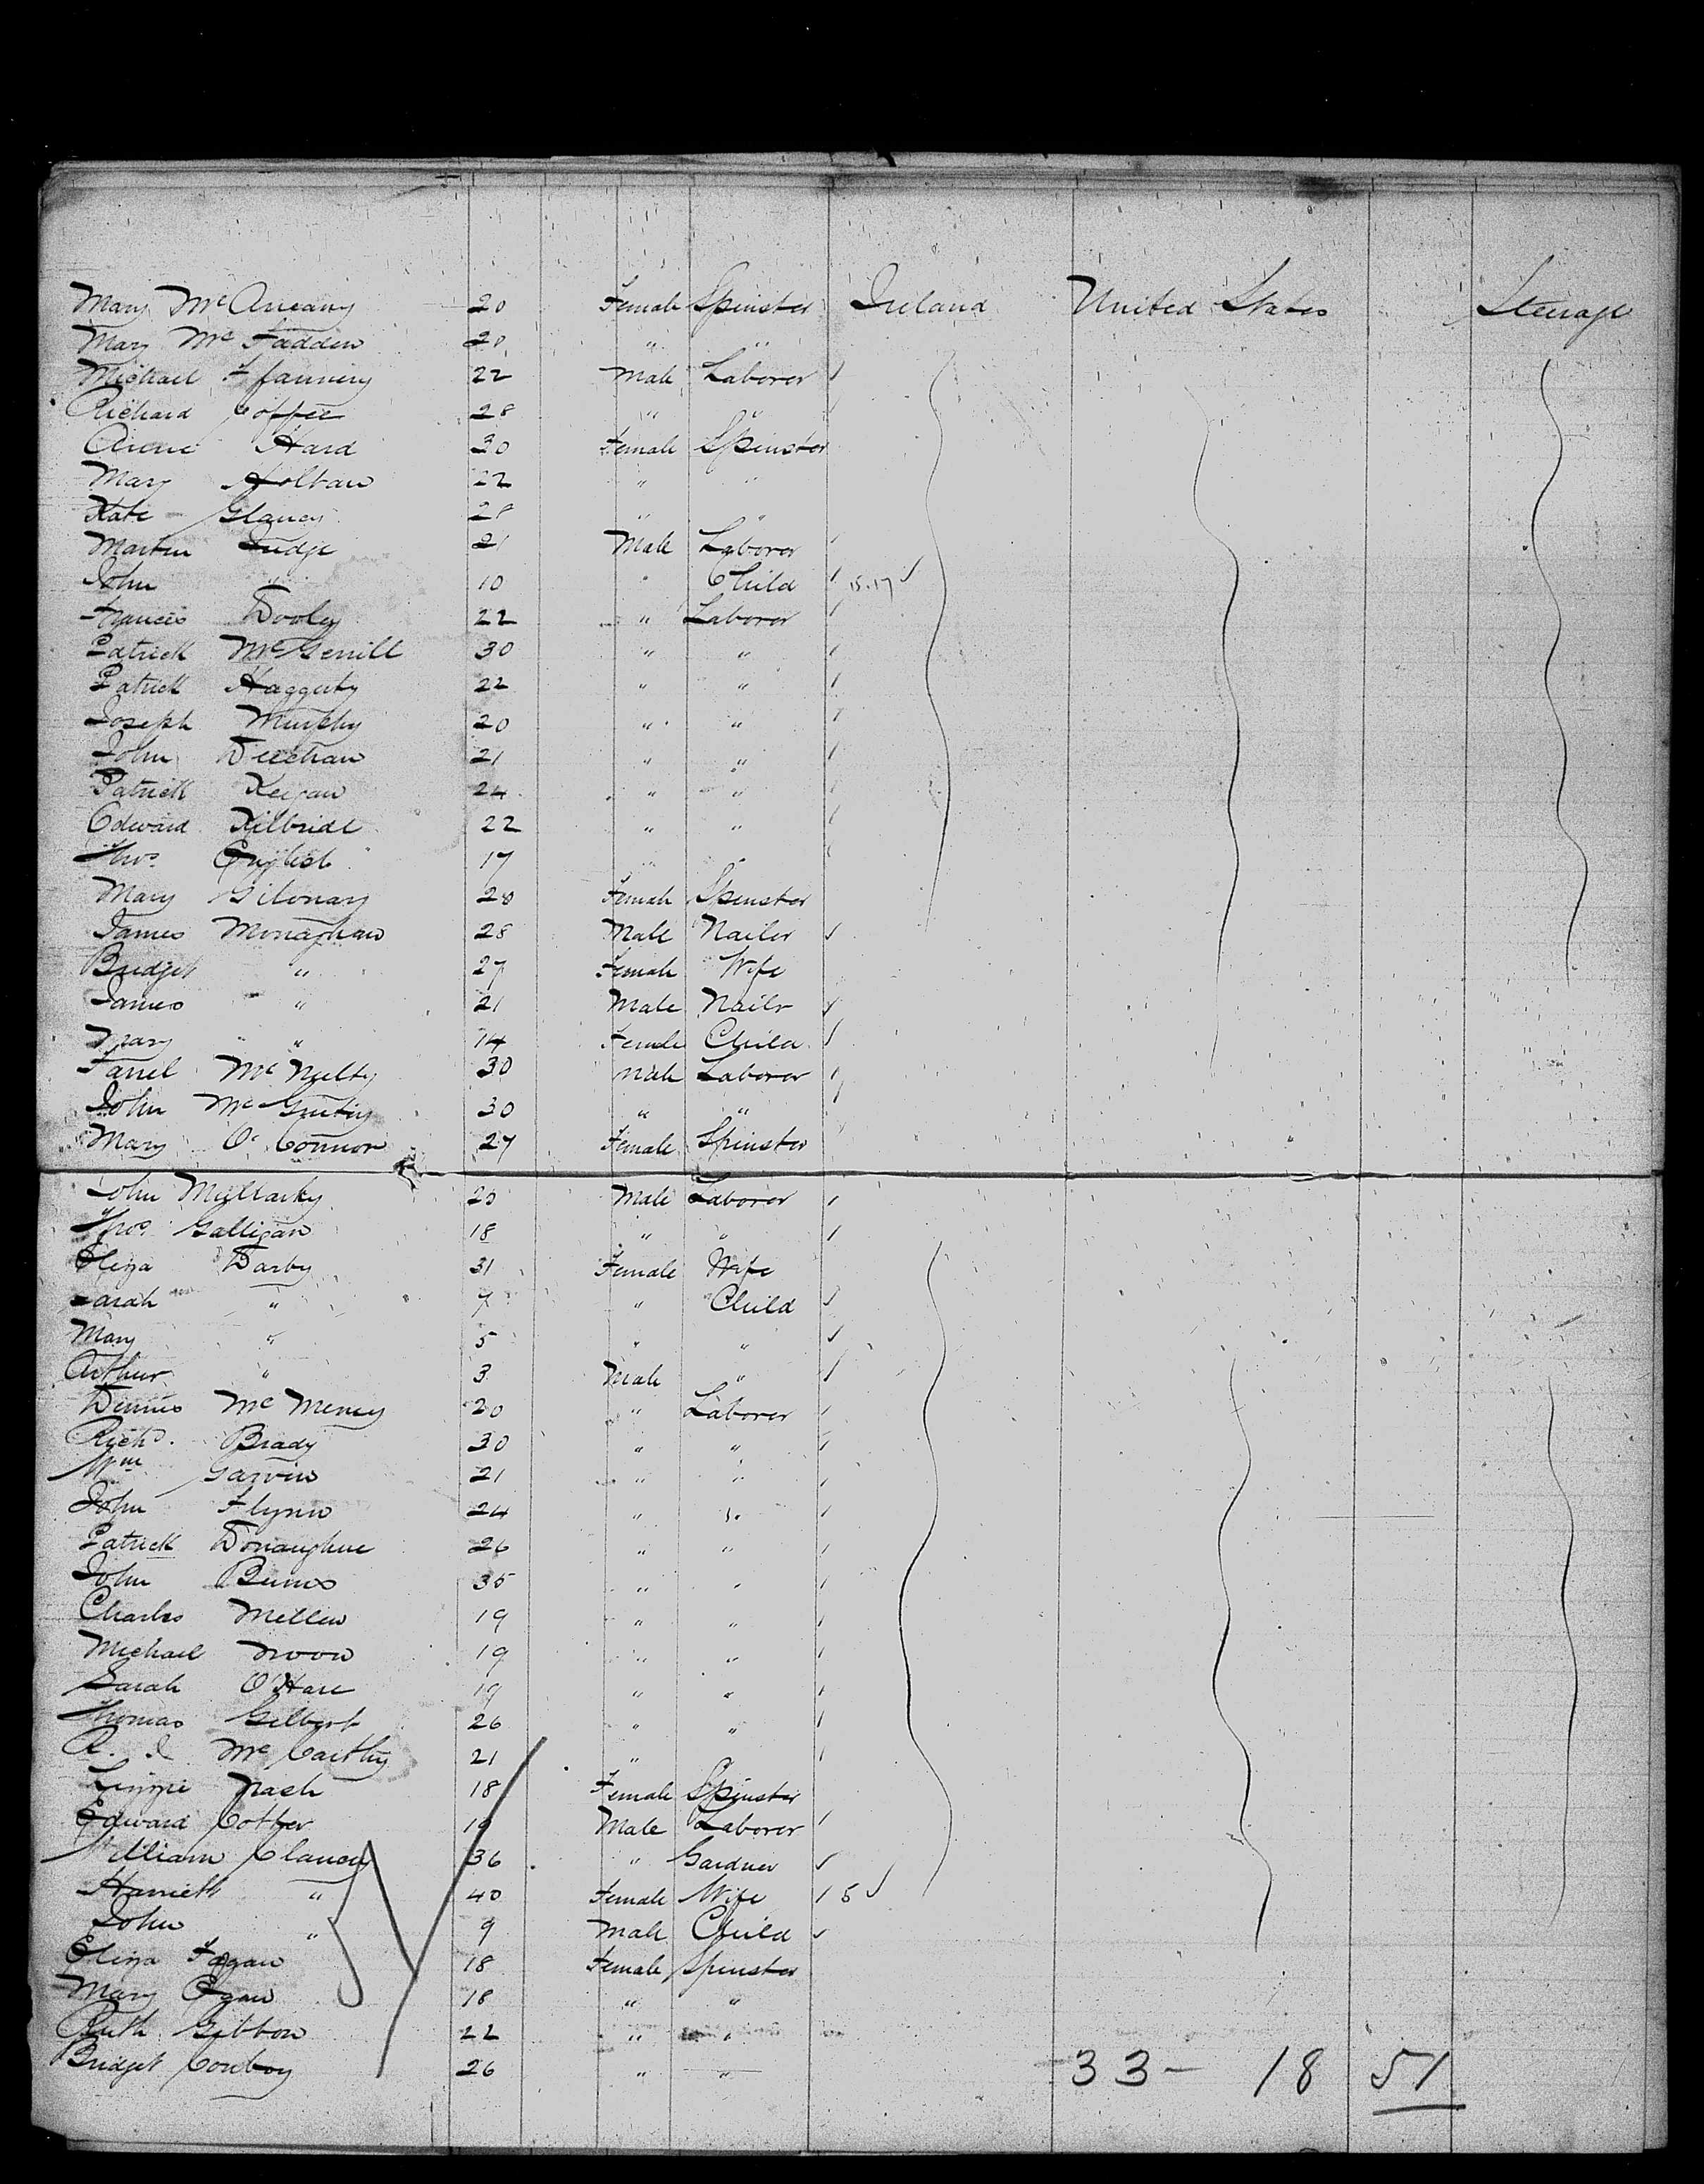 Mary McAneany 20 Female Spinster Ireland United States Steerage
Mary McFadden 20 " "
Michael Flannery 22 Male Laborer
Richard Coffee 28 " "
Annie Hard 30 Female Spinster
Mary 22 " "
Kate Glancy 28 " "
Martin Judge 21 Male Laborer
John " 10 " Child 15.17
Francis Dooley 22 " Laborer
Patrick McGerrill 30 " "
Patrick Haggerty 22 " "
Joseph Murphy 20 " "
John Deeehan 21 " "
Patrick Keegan 24 " "
Edward Kilbride 22 " "
Thos. English 17 " "
Mary Gilonay 20 Female Spinster
James Monaghan 28 Male Nailer
Bridget " 27 Female Wife
James " 21 Male Nailr
Mary " 14 Female Child
Farrel McNulty 30 Male Laborer
John McGinty 30 " "
Mary O'Connor 27 Female Spinster
John Mullarky 20 Male Laborer
Thos. Galligan 18 " "
Eliza Darby 31 Female Wife
Sarah " 7 " Child
Mary " 5 " "
Arthur " 3 Male "
Dennis McMeney 20 " Laborer
Richd. Brady 30 " "
Wm Garvin 21 " "
John Flynn 24 " "
Patrick Donaughue 26 " "
John Burns 35 " "
Charles Mellen 19 " "
Michael Noon 19 " "
Sarah O'Hare 19 " "
Thomas Gilbert 26 " "
R. J. McCarthy 21 "
Lizzie Nash 18 Female Spinster
Edward Cotter 19 Male Laborer
William Clancy 36 " Gardner
Harriett " 40 Female Wife 5
John " 9 Male Child
Eliza Fagan 18 Female Spinster
Mary Egan 18 " "
Ruth Gibbon 22 " "
Bridget Conboy 26 " "
33 - 18 51